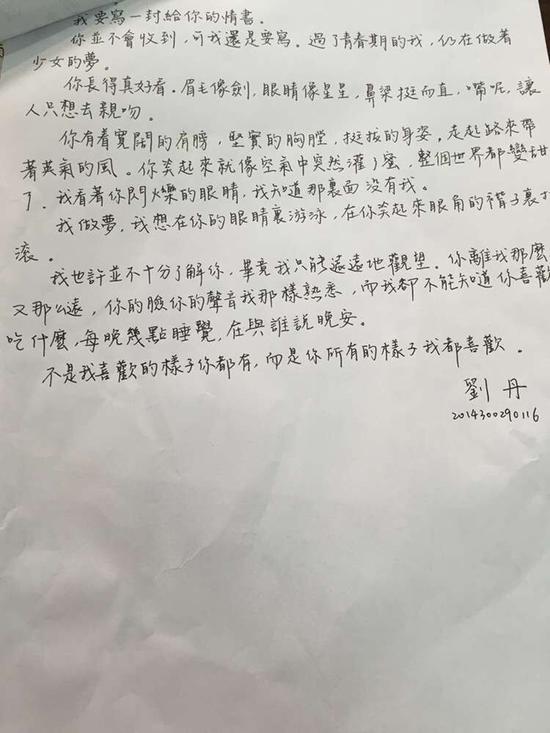 我要寫一封給你的情書.
你並不會收到,可我還是要寫.過了青春期的我,仍在做着
少女的夢.
你長得真好看.眉毛像劍,眼睛像星星,鼻梁挺而直,嘴呢,讓
人只想去親吻.
你有着寬闊的肩膀,堅實的胸膛,挺拔的身姿,走起路來帶
著英氣的風.你笑起來就像空氣中突然灌了蜜,整個世界都變甜
了.我看着你閃爍的眼睛,我知道那裏面沒有我.
我做夢,我想在你的眼睛裏游泳,在你笑起來眼角的褶子裏打
滾.
我也許並不十分了解你,畢竟我只能遠遠地觀望.你離我那麽
又那么遠,你的臉你的聲音我那樣熟悉,而我卻不能知道你喜歡
吃什麽,每晚幾點睡覺,在與誰説晚安.
不是我喜歡的樣子你都有,而是你所有的樣子我都喜歡.
劉丹
2014300290116